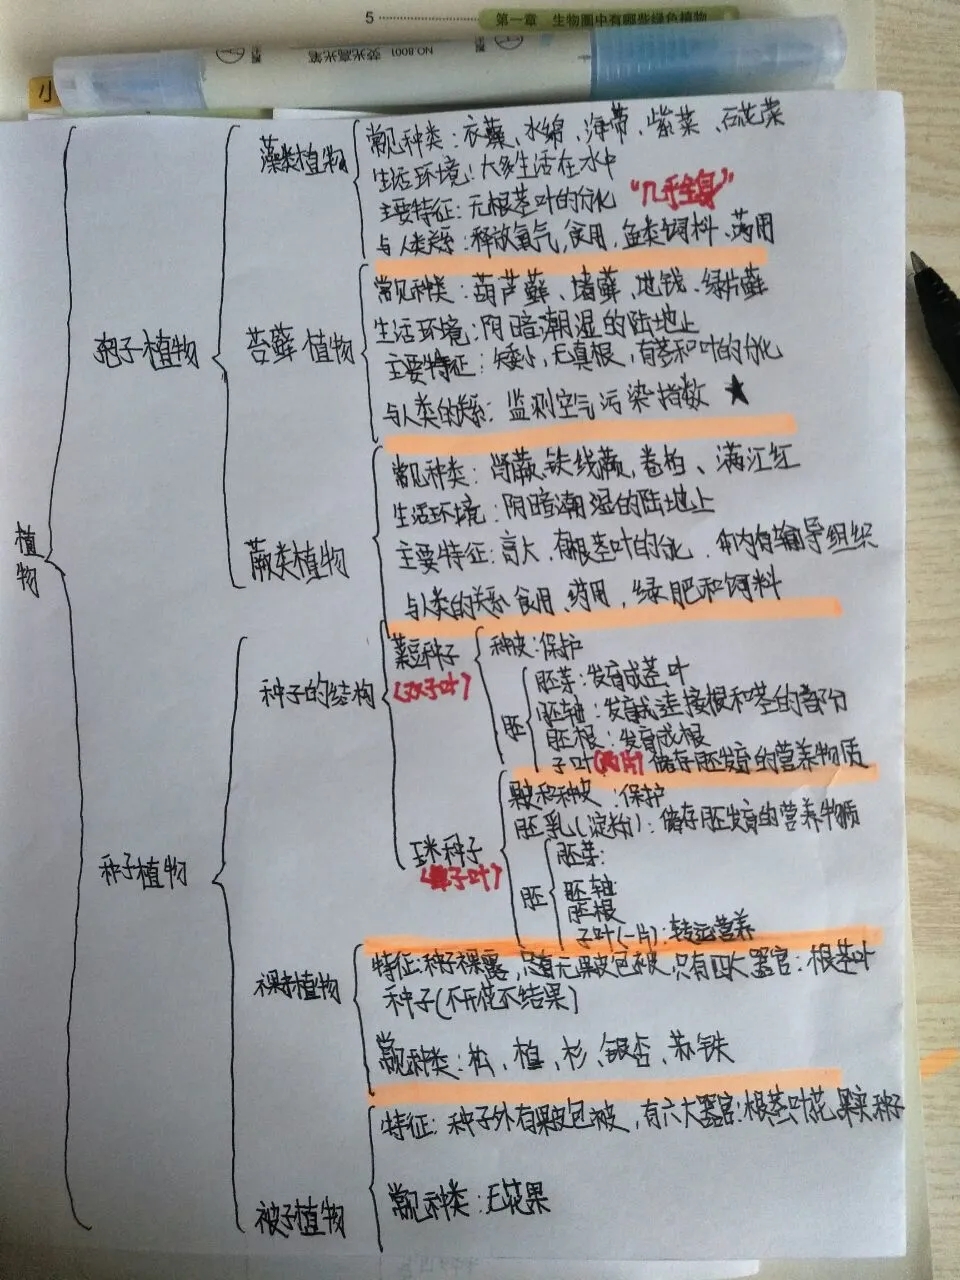 5
第一章 生物圈中有哪些绿色植物
NO.8001
荧光高光笔
小
植物
孢子植物
藻类植物
常见种类：衣藻、水绵、海带、紫菜、石花菜
生活环境：大多生活在水中
主要特征：无根茎叶的分化 “几乎全身”
与人类关系：释放氧气,食用,鱼类饲料、药用
苔藓植物
常见种类：葫芦藓、墙藓、地钱、绿片藓
生活环境：阴暗潮湿的陆地上
主要特征：矮小,无真根,有茎和叶的分化
与人类的关系：监测空气污染指数 ★
蕨类植物
常见种类：肾蕨,铁线蕨,卷柏、满江红
生活环境：阴暗潮湿的陆地上
主要特征：高大,有根茎叶的分化,体内有输导组织
与人类的关系 食用、药用,绿肥和饲料
种子植物
种子的结构
菜豆种子
(双子叶)
种皮：保护
胚
胚芽：发育成茎叶
胚轴：发育成连接根和茎的部分
胚根：发育成根
子叶(两片) 储存胚发育的营养物质
玉米种子
(单子叶)
果皮和种皮：保护
胚乳(淀粉)：储存胚发育的营养物质
胚
胚芽：
胚轴
胚根
子叶(一片)：转运营养
裸子植物
特征：种子裸露,无果皮包被,只有四大器官：根茎叶
种子(不开花不结果)
常见种类：松、杉、银杏、苏铁
被子植物
特征：种子外有果皮包被,有六大器官：根茎叶花果实种子
常见种类：无花果